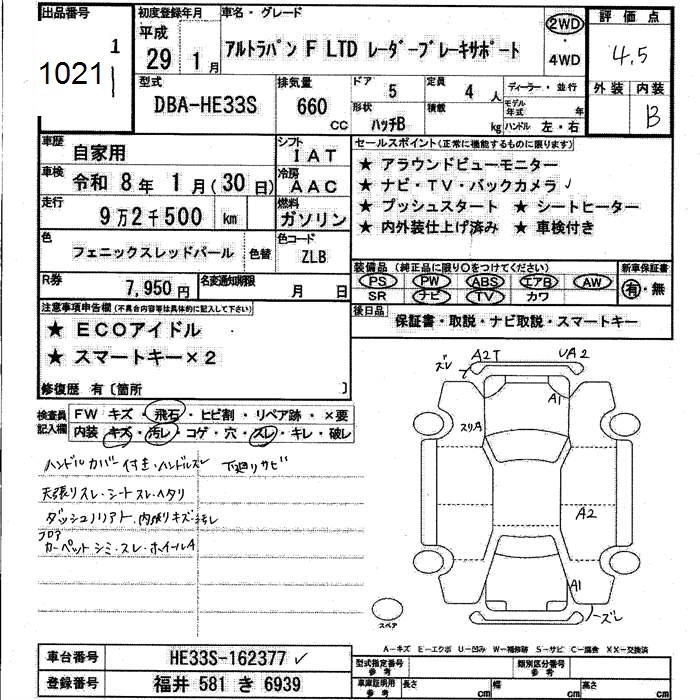 出品番号
10211
初度登録年月
平成
29 1月
車名・グレード
アルトラパン F LTD レーダーブレーキサポート
2WD
・
4WD
評価点
4.5
外装 内装
B
型式
DBA-HE33S
排気量
660 CC
ドア 5
定員 4 人
形状 ハッチB
積載 kg
ディーラー・並行
モデル年式 年
ハンドル 左・右
車歴 自家用
シフト IAT
車検 令和 8年 1月(30日)
冷房 AAC
走行 9万2千500 km
燃料 ガソリン
色 フェニックスレッドパール 色替
色コード ZLB
R券 7,950円
名変通知期限 月 日
セールスポイント(正常に機能するものに限ります)
★ アラウンドビューモニター
★ ナビ・TV・バックカメラ
★ プッシュスタート ★ シートヒーター
★ 内外装仕上げ済み ★ 車検付き
装備品 (純正品に限り○をつけてください)
PS PW ABS エアB AW
SR ナビ TV カワ
新車保証書
有・無
後日品 保証書・取説・ナビ取説・スマートキー
注意事項申告欄(不具合内容等は具体的に記入して下さい)
★ ECOアイドル
★ スマートキー×2
修復歴 有〔箇所 〕
検査員記入欄
FW キズ・飛石・ヒビ割・リペア跡・×要
内装・キズ・汚レ・コゲ・穴・スレ・キレ・破レ
ハンドルカバー付き・ハンドルスレ 下廻りサビ
天張りスレ・シートスレ・ヘタリ
ダッシュノリアト・内張りキズ・汚レ
フロア
カーペットシミ・スレ・ホイールA
ズレ A2T UA2
A1
スリA
A2
A1
ズレ
スペア
A-キズ E-エクボ U-凹み W-補修跡 S-サビ C-腐食 XX-交換済
車台番号 HE33S-162377
登録番号 福井 581 き 6939
型式指定番号 参考
類別区分番号 参考
車庫証明用 参考
長さ cm 幅 cm 高さ cm